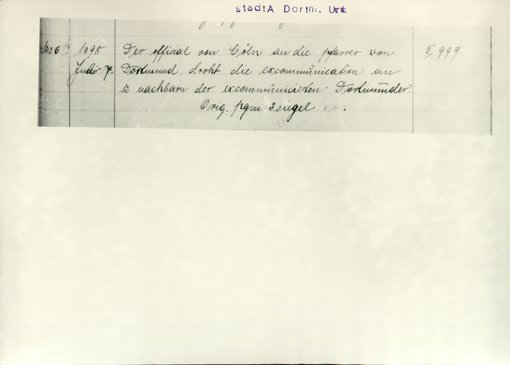 StadtA Dortm. Urk
1395 Der official von Cöln an die pfarrer von II 999.
Juli 7. Dortmund, droht die excommunication an
12 nachbarn der excommunicirten Dortmunder
Orig. pgm Siegel ab.